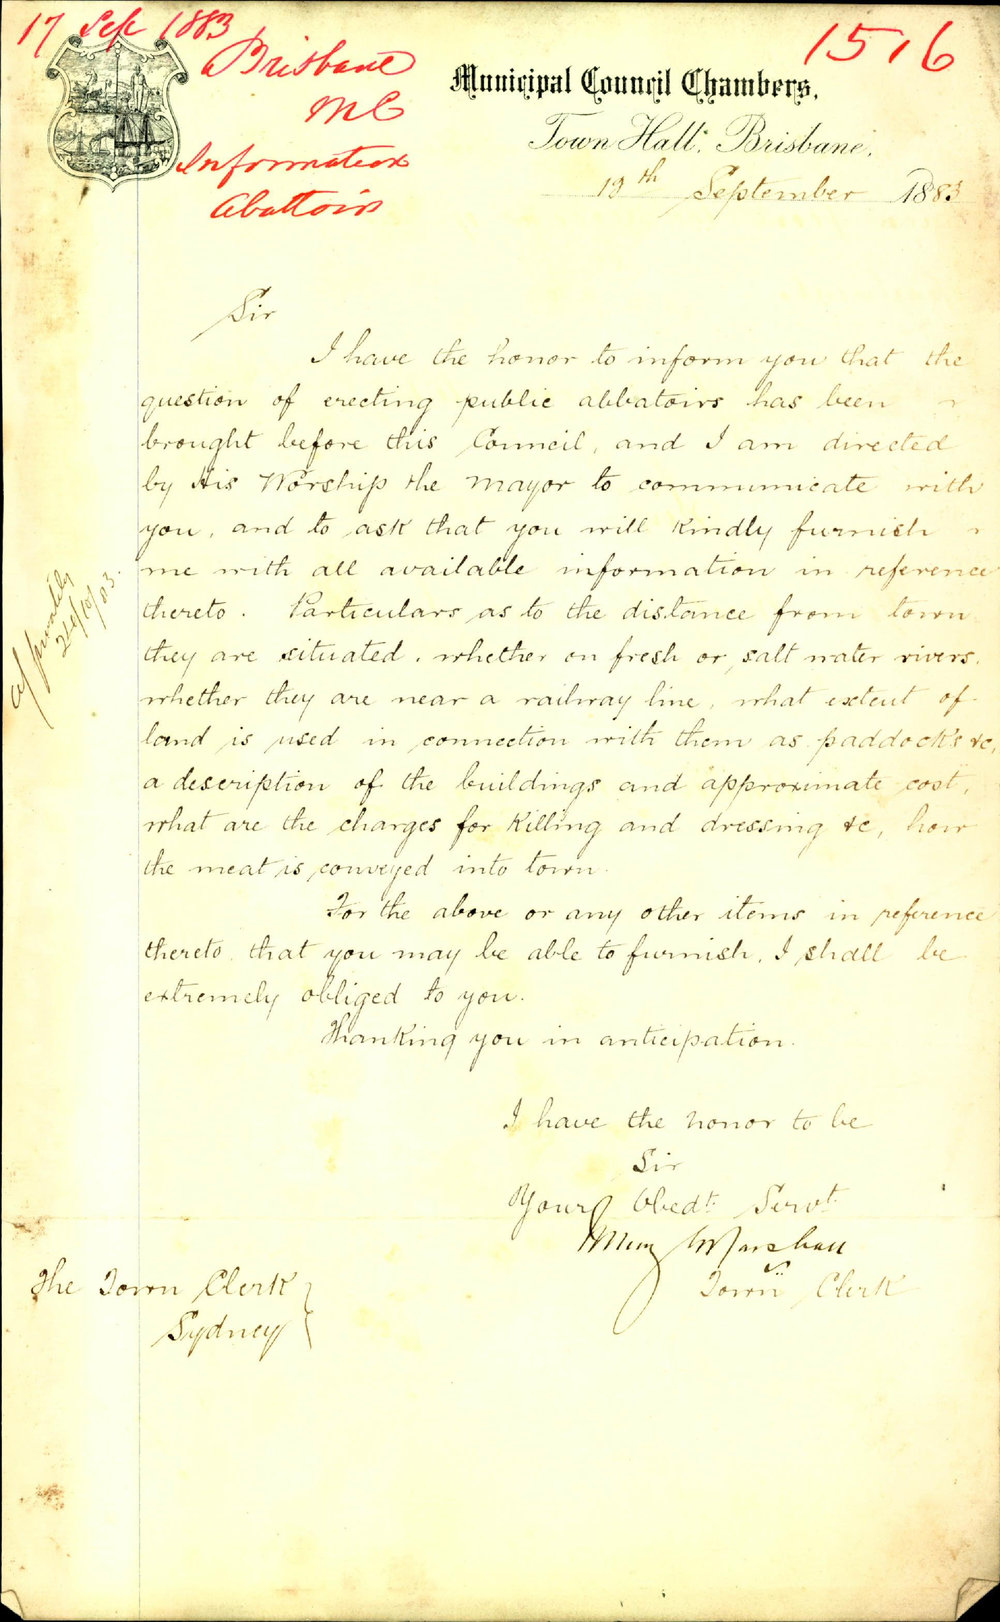 17 Sep 1883
1516
Brisbane
MC
Information
Abattoirs
Municipal Council Chambers,
Town Hall, Brisbane,
13th September 1883
Sir
I have the honor to inform you that the
question of erecting public abbatoirs has been
brought before this Council, and I am directed
by His Worship the Mayor to communicate with
you, and to ask that you will kindly furnish
me with all available information in reference
thereto. Particulars as to the distance from town
they are situated, whether on fresh or salt water rivers,
whether they are near a railway line, what extent of
land is used in connection with them as paddock's &c,
a description of the buildings and approximate cost,
what are the charges for killing and dressing &c, how
the meat is conveyed into town.
For the above or any other items in reference
thereto that you may be able to furnish, I shall be
extremely obliged to you.
Thanking you in anticipation.
I have the honor to be
Sir
Your Obedt Servt
Marshall
Town Clerk
The Town Clerk
Sydney